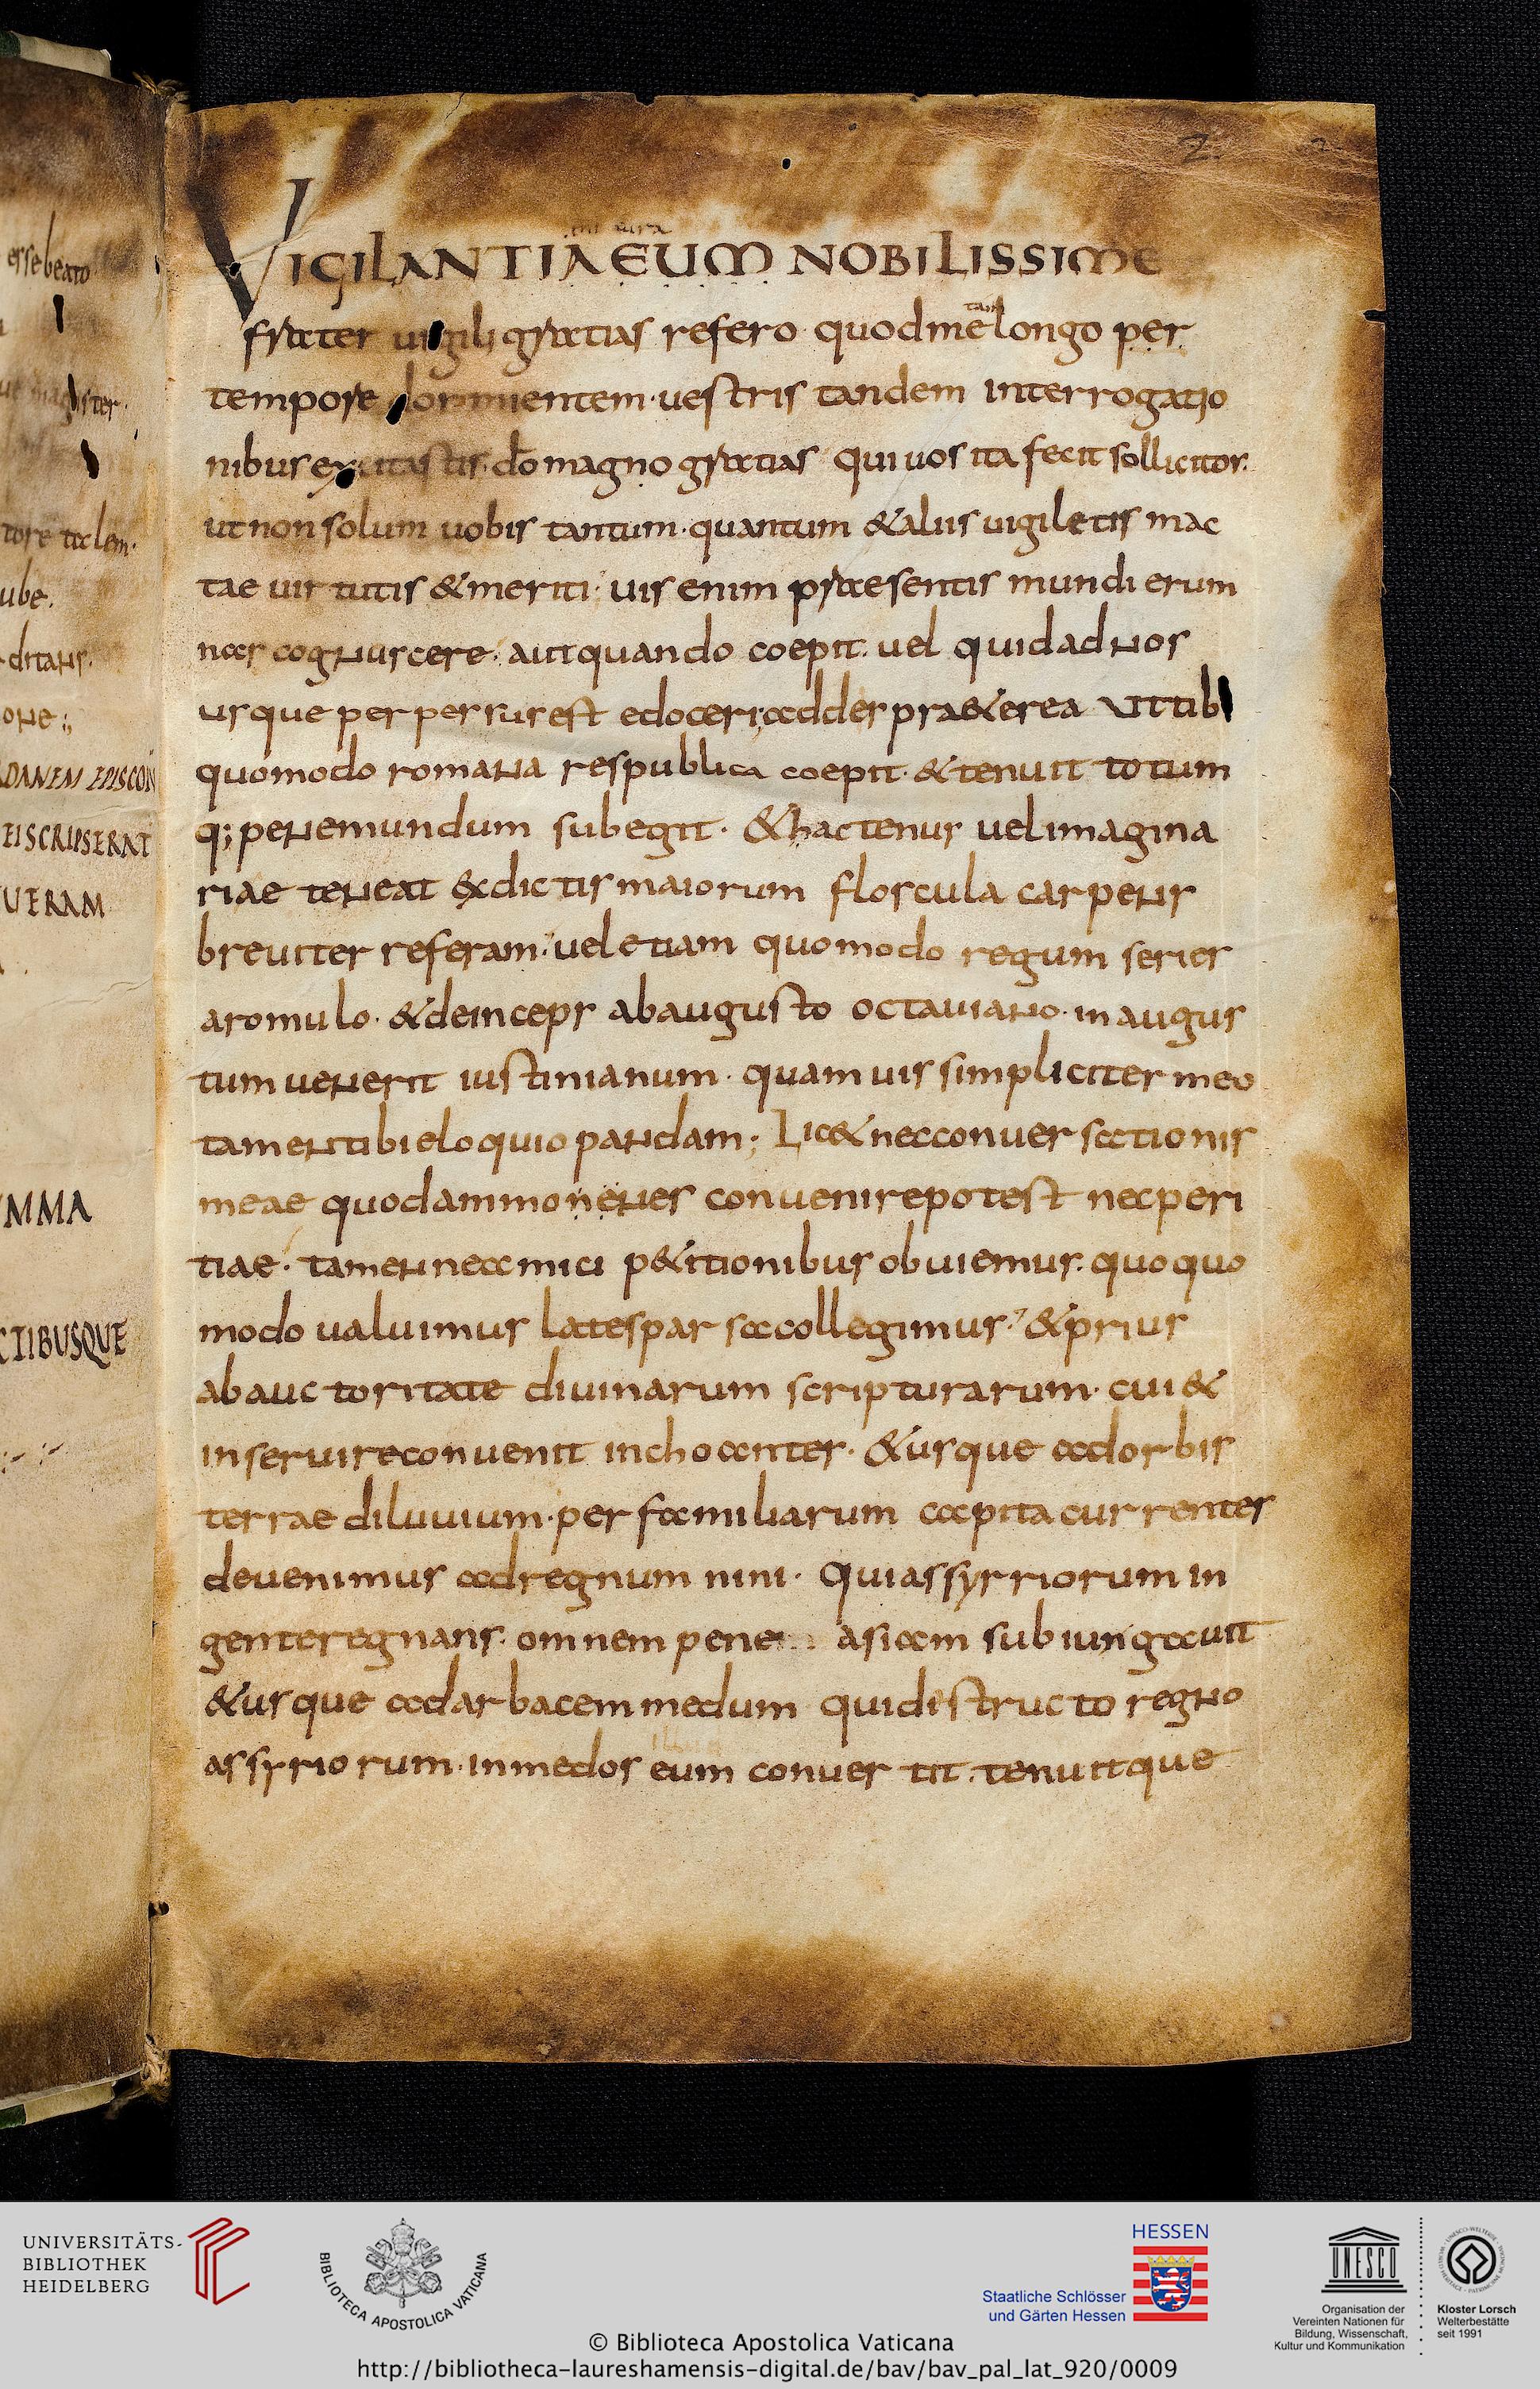 2.
VIGILANTIAE EUM NOBILISSIME
frater vigili gratias refero quod me tam longo per
tempore dormientem · uestris tandem interrogatio
nibus excitastis · do magno gratias qui uos ita fecit sollicitos.
ut non solum uobis tantum · quantum & aliis uigiletis mac
tae uirtutis & meriti · uis enim praesentis mundi erum
nas cognuscere · aut quando coepit · uel quid ad nos
usque perpessus est edoceri; addes praeterea ut tibi
quomodo romana respublica coepit · & tenuit totum
q; pene mundum subegit · & hactenus uel imagina
riae teneat ex dictis maiorum floscula carpens
breuiter referam · uel etiam quomodo regum series
a romulo · & deinceps ab augusto octauiano · in augus
tum uenerit iustinianum · quam uis simpliciter meo
tamen tibi eloquio pandam; Licet nec conuersationis
meae quod ammonenes conuenire potest nec peri
tiae · tamen ne amici petitionibus obuiemus · quoquo
modo ualuimus late sparsa collegimus · & prius
ab auctoritate diuinarum scripturarum · cui &
inseruire conuenit inchoantes · & usque ad orbis
terrae diluuium · per familiarum capita currentes
deuenimus ad regnum nini · Qui assyriorum in
gente regnans · omnem pene asiam subiungauit
& usque ad arbacem medum qui destructo regno
assyriorum · in medos eum conuertit · tenuitque
erse beato
ube.
ditans.
one;
DANEM EPISCON
EI SCRIPSERAT
UERAM
MMA
CTIBUSQUE
UNIVERSITÄTS-
BIBLIOTHEK
HEIDELBERG
BIBLIOTECA APOSTOLICA VATICANA
HESSEN
Staatliche Schlösser
und Gärten Hessen
UNESCO
Organisation der
Vereinten Nationen für
Bildung, Wissenschaft,
Kultur und Kommunikation
Kloster Lorsch
Welterbestätte
seit 1991
© Biblioteca Apostolica Vaticana
http://bibliotheca-laureshamensis-digital.de/bav/bav_pal_lat_920/0009